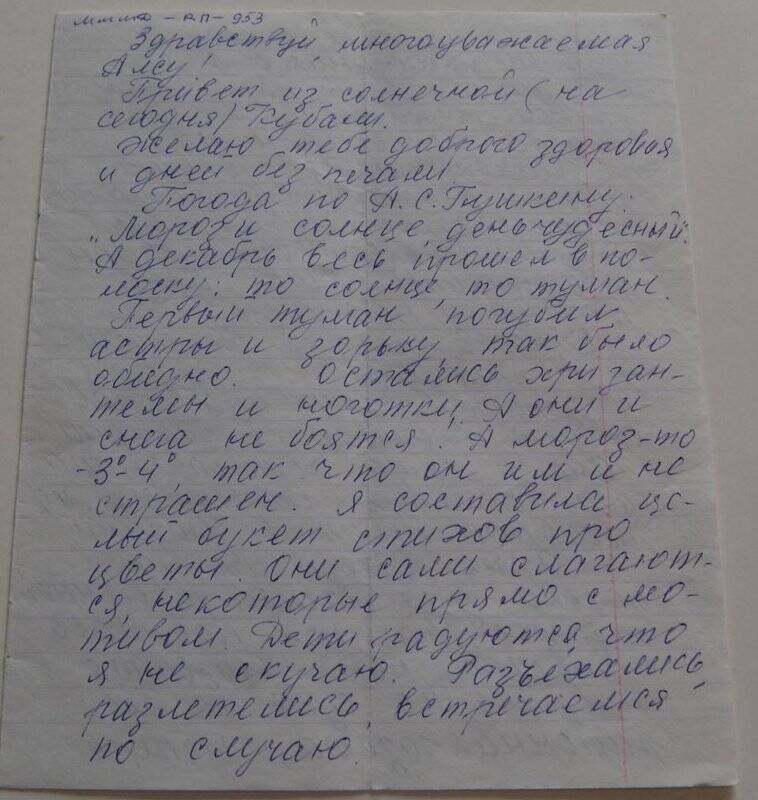 ммма - ВП - 953
Здравствуй, многоуважаемая
Алсу!
Привет из солнечной (на
сегодня) Кубани.
Желаю тебе доброго здоровья
и дней без печали.
Погода по А.С. Пушкину:
„Мороз и солнце, день чудесный".
А декабрь весь прошел в по-
лоску: то солнце, то туман.
Первый туман погубил
астры и зорьку, так было
обидно. Остались хризан-
темы и ноготки. А они и
снега не боятся! А мороз-то
-3°-4°, так что он им и не
страшен. Я составила це-
лый букет стихов про
цветы. Они сами слагают-
ся, некоторые прямо с мо-
тивом. Дети радуются, что
я не скучаю. Разъехались,
разлетелись, встречаемся
по случаю.